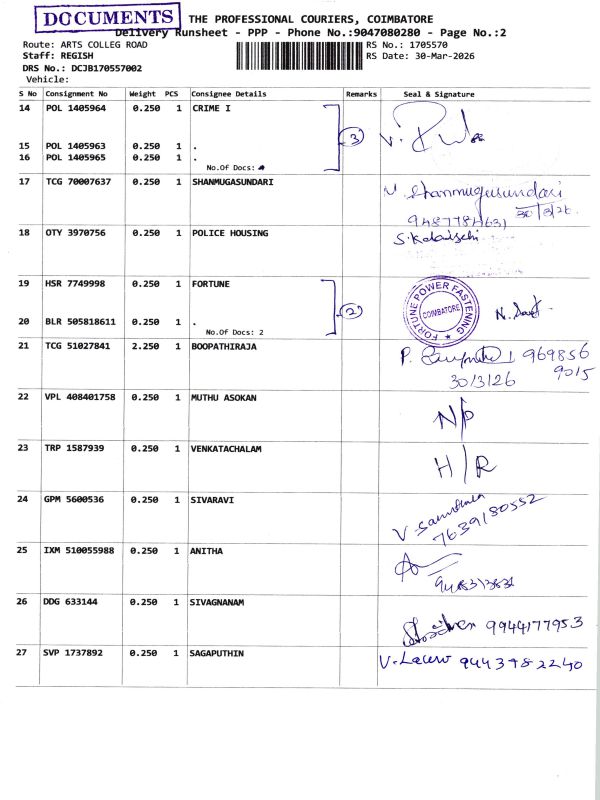 DOCUMENTS
THE PROFESSIONAL COURIERS, COIMBATORE
Delivery Runsheet - PPP - Phone No.:9047080280 - Page No.:2
Route: ARTS COLLEG ROAD
RS No.: 1705570
Staff: REGISH
RS Date: 30-Mar-2026
DRS No.: DCJB170557002
Vehicle:
S No Consignment No Weight PCS Consignee Details Remarks Seal & Signature
14 POL 1405964 0.250 1 CRIME I
3
15 POL 1405963 0.250 1 .
16 POL 1405965 0.250 1 .
No.Of Docs:
17 TCG 70007637 0.250 1 SHANMUGASUNDARI
V. Shanmugusundari
30/3/26
18 OTY 3970756 0.250 1 POLICE HOUSING
19 HSR 7749998 0.250 1 FORTUNE
2
FORTUNE POWER FASTENING
COIMBATORE
20 BLR 505818611 0.250 1 .
No.Of Docs: 2
21 TCG 51027841 2.250 1 BOOPATHIRAJA
P. 969856
30/3/26 9015
22 VPL 408401758 0.250 1 MUTHU ASOKAN
N/P
23 TRP 1587939 0.250 1 VENKATACHALAM
H/R
24 GPM 5600536 0.250 1 SIVARAVI
7639180552
25 IXM 510055988 0.250 1 ANITHA
26 DDG 633144 0.250 1 SIVAGNANAM
9944177953
27 SVP 1737892 0.250 1 SAGAPUTHIN
9443782240